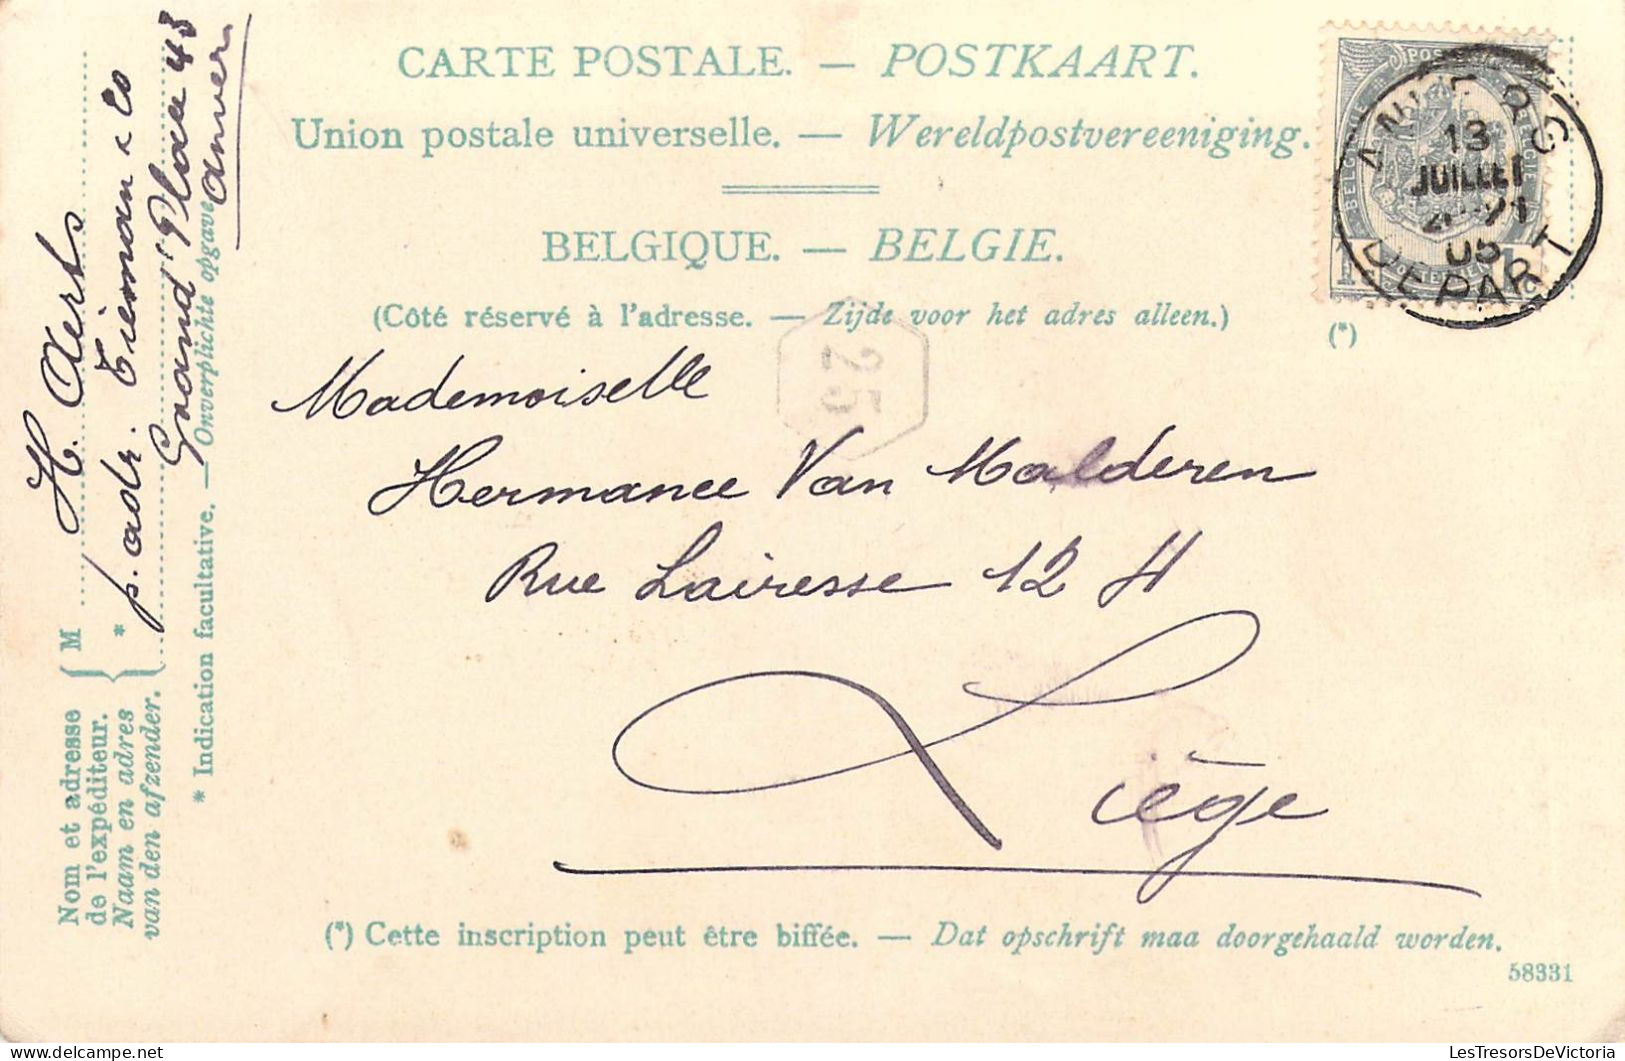 CARTE POSTALE. — POSTKAART.
Union postale universelle. — Wereldpostvereeniging.
BELGIQUE. — BELGIE.
(Côté réservé à l'adresse. — Zijde voor het adres alleen.)
(*)
13
JUILLET
05
DEPART
25
Mademoiselle
Hermance Van Malderen
Rue Lairesse 12 H
Liège
(*) Cette inscription peut être biffée. — Dat opschrift maa doorgehaald worden.
58331
Nom et adresse
de l'expéditeur.
Naam en adres
van den afzender.
M H. Aerts
*
p. adr. Tieman & Co
Grand'Place 43
Anvers
* Indication facultative. — Onverplichte opgave
LesTresorsDeVictoria.com